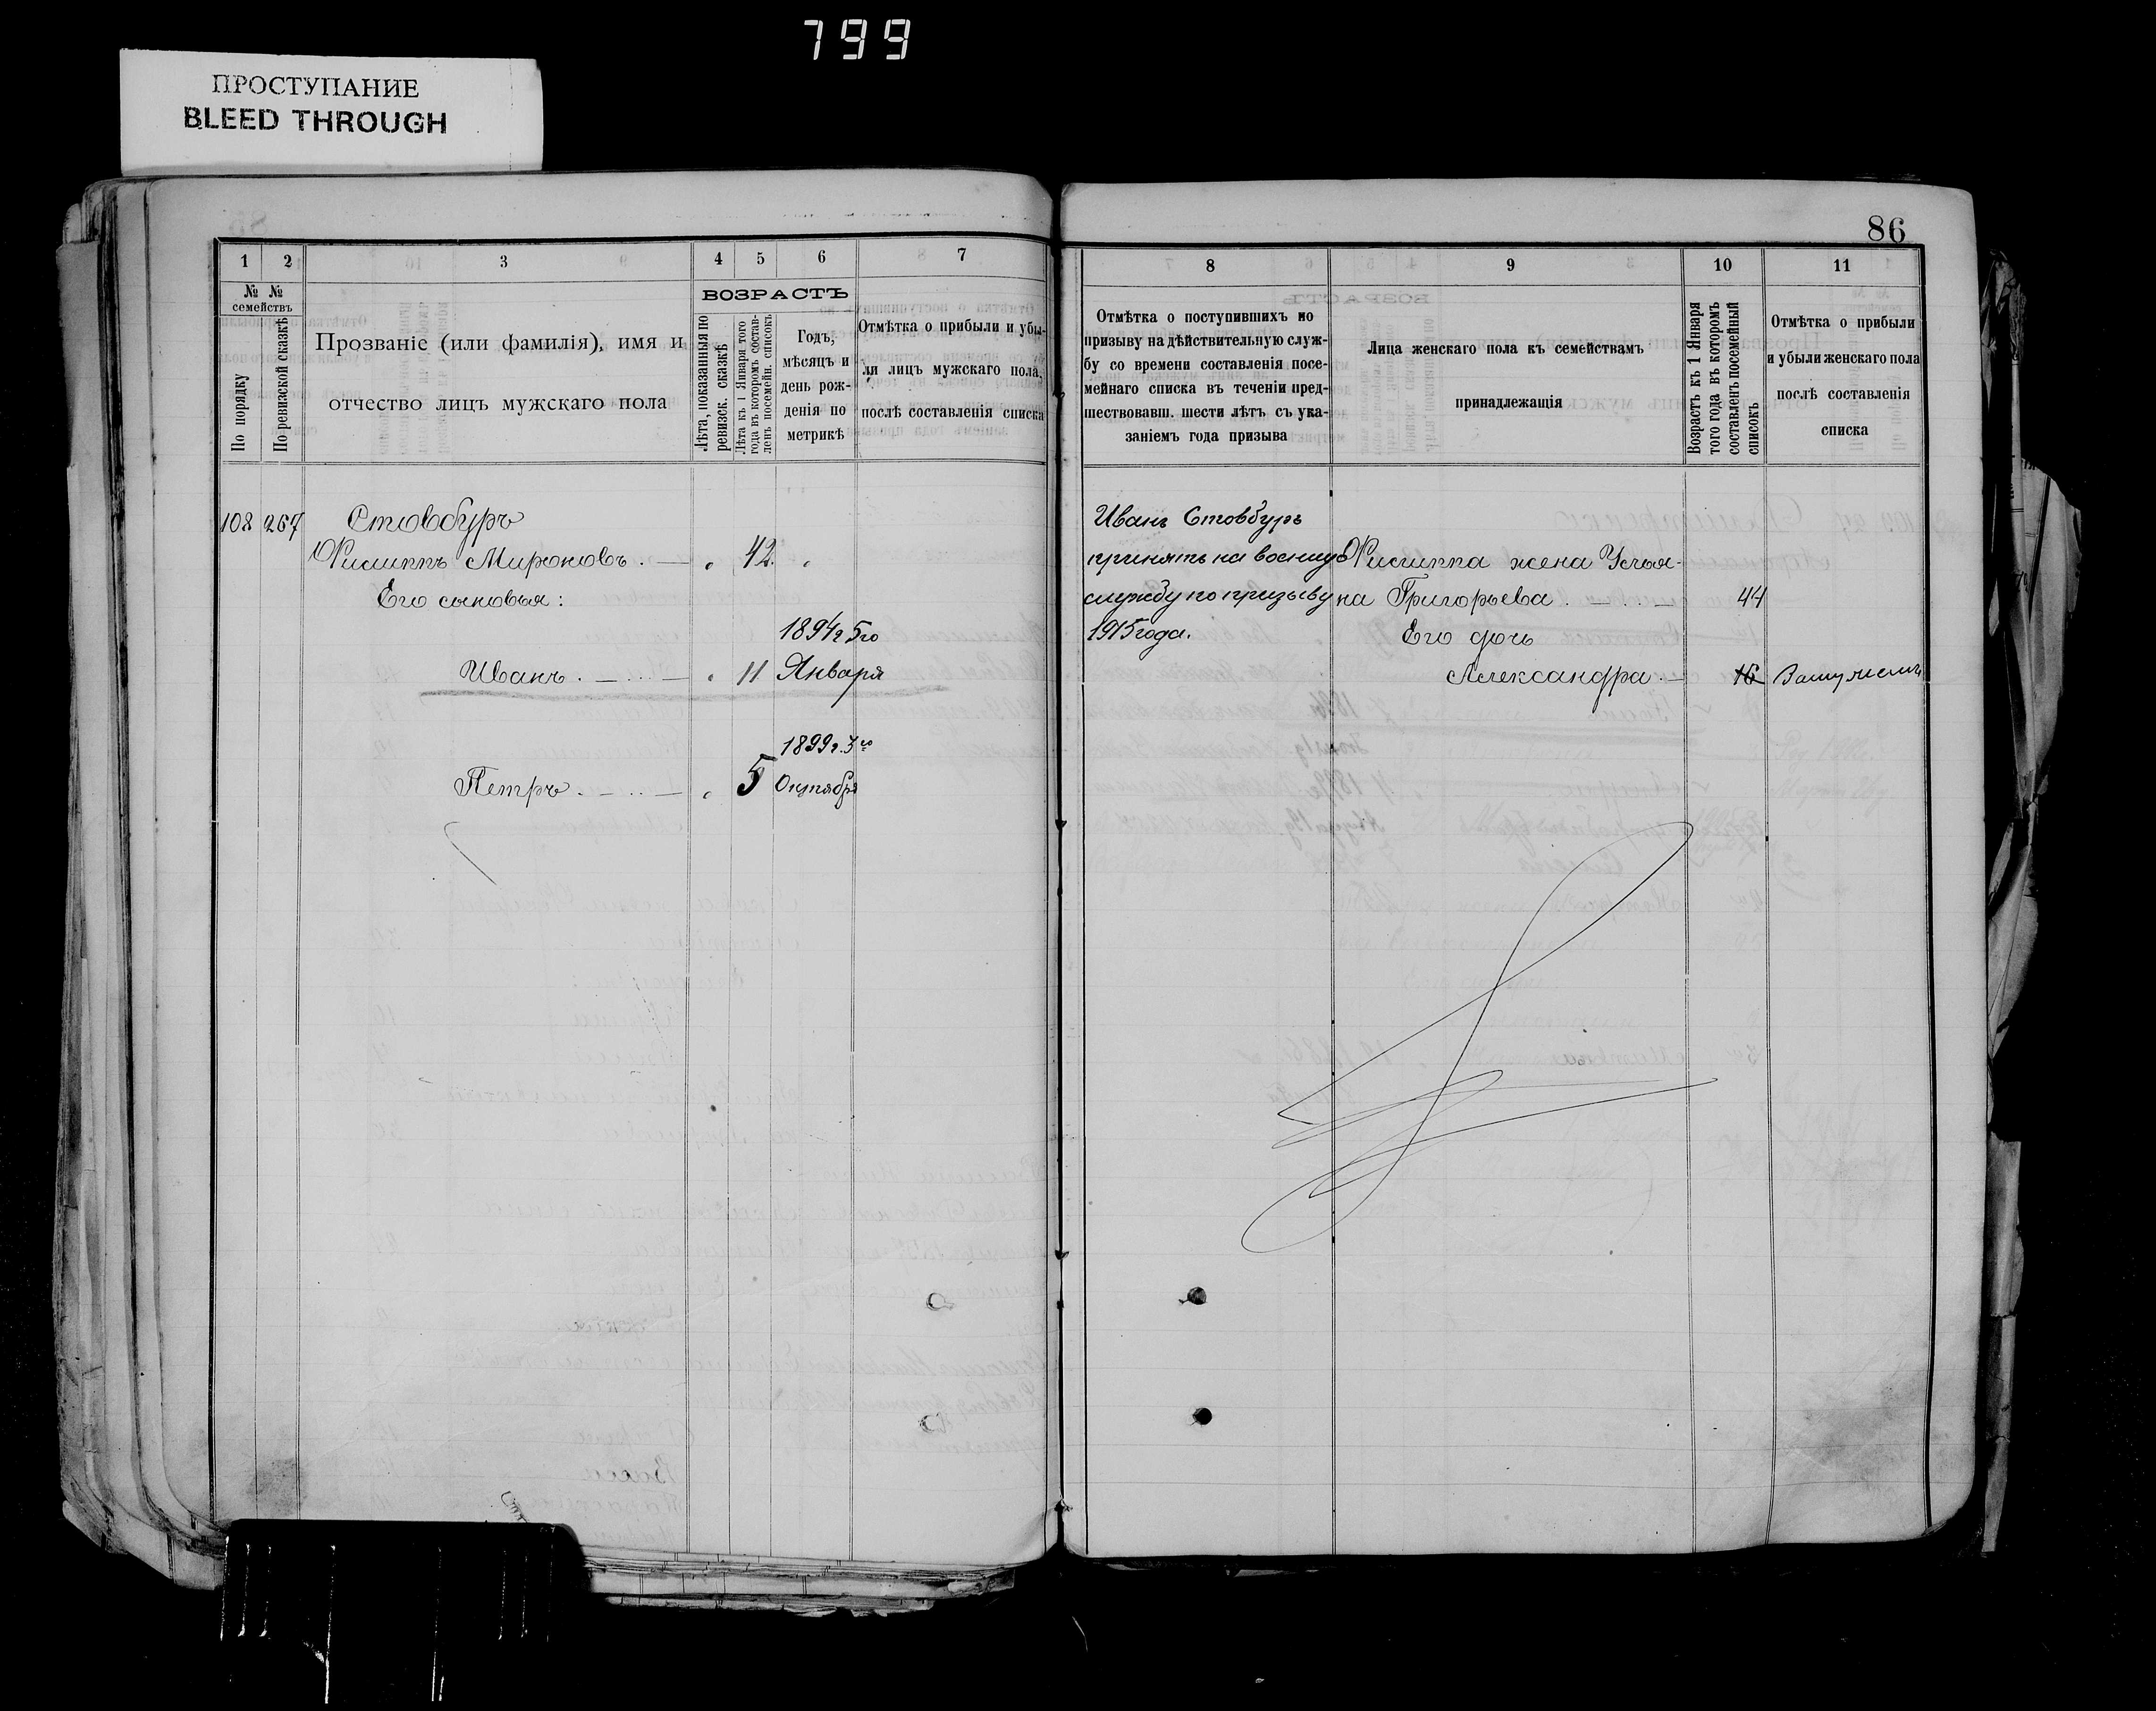 799
ПРОСТУПАНИЕ
BLEED THROUGH
86
1 2 3 4 5 6 7
№ № семействъ
По порядку
По ревизской сказкѣ
Прозваніе (или фамилія), имя и
отчество лицъ мужскаго пола
ВОЗРАСТЪ
Лѣта, показанныя по
ревизск. сказкѣ
Лѣта къ 1 Января того
года въ которомъ состав-
ленъ посемейн. списокъ
Годъ,
мѣсяцъ и
день рож-
денія по
метрикѣ
Отмѣтка о прибыли и убы-
ли лицъ мужскаго пола,
послѣ составленія списка
108 267 Стовбуръ
Филиппъ Мироновъ . — „ 42. „
Его сыновья:
1894 г 5го
Иванъ . — . . — „ 11 Января
1899 г. 3го
Петръ . — . . — „ 5 Октября
8 9 10 11
Отмѣтка о поступившихъ по
призыву на дѣйствительную служ-
бу со времени составленія посе-
мейнаго списка въ теченіи пред-
шествовавш. шести лѣтъ съ ука-
заніемъ года призыва
Лица женскаго пола къ семействамъ
принадлежащія
Возрастъ къ 1 Января
того года въ которомъ
составленъ посемейный
списокъ
Отмѣтка о прибыли
и убыли женскаго пола
послѣ составленія
списка
Иванъ Стовбуръ
принятъ на военную
службу по призыву
1915 года.
Филиппа жена Улья-
на Григорьева . — . . — 44
Его дочь
Александра . — 16 Замужемъ